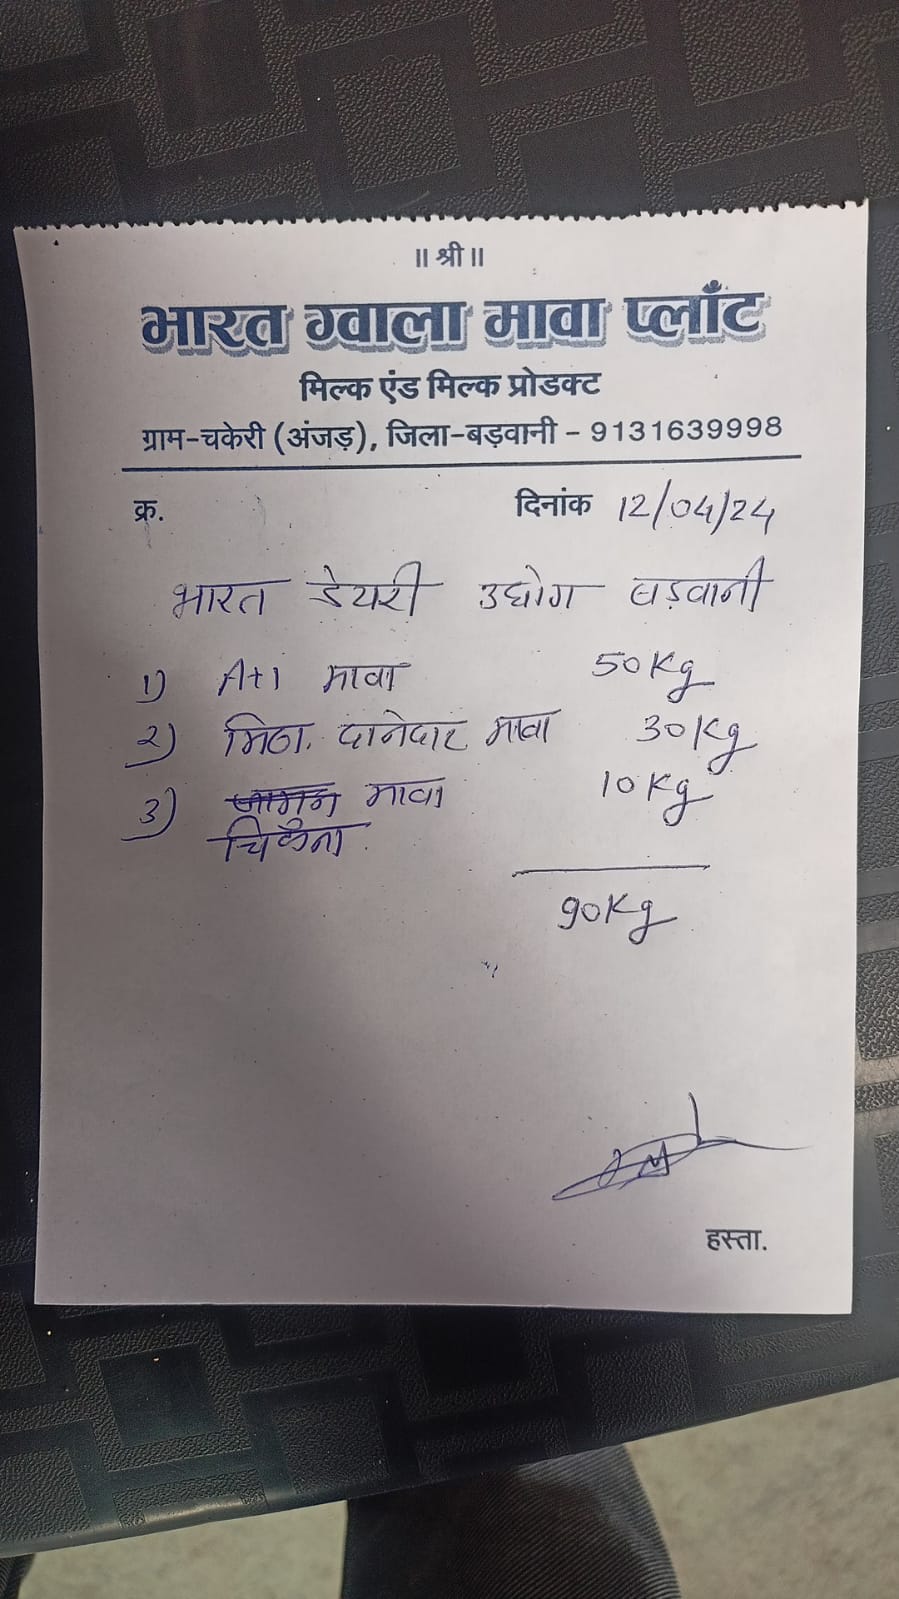 ॥ श्री ॥
भारत ग्वाला मावा प्लाँट
मिल्क एंड मिल्क प्रोडक्ट
ग्राम-चकेरी (अंजड़), जिला-बड़वानी - 9131639998
क्र. दिनांक 12/04/24
भारत डेयरी उद्योग बड़वानी
1) A+1 मावा 50Kg
2) मिठा. दानेदार मावा 30Kg
3) जामन मावा 10Kg
चिकना
90Kg
हस्ता.